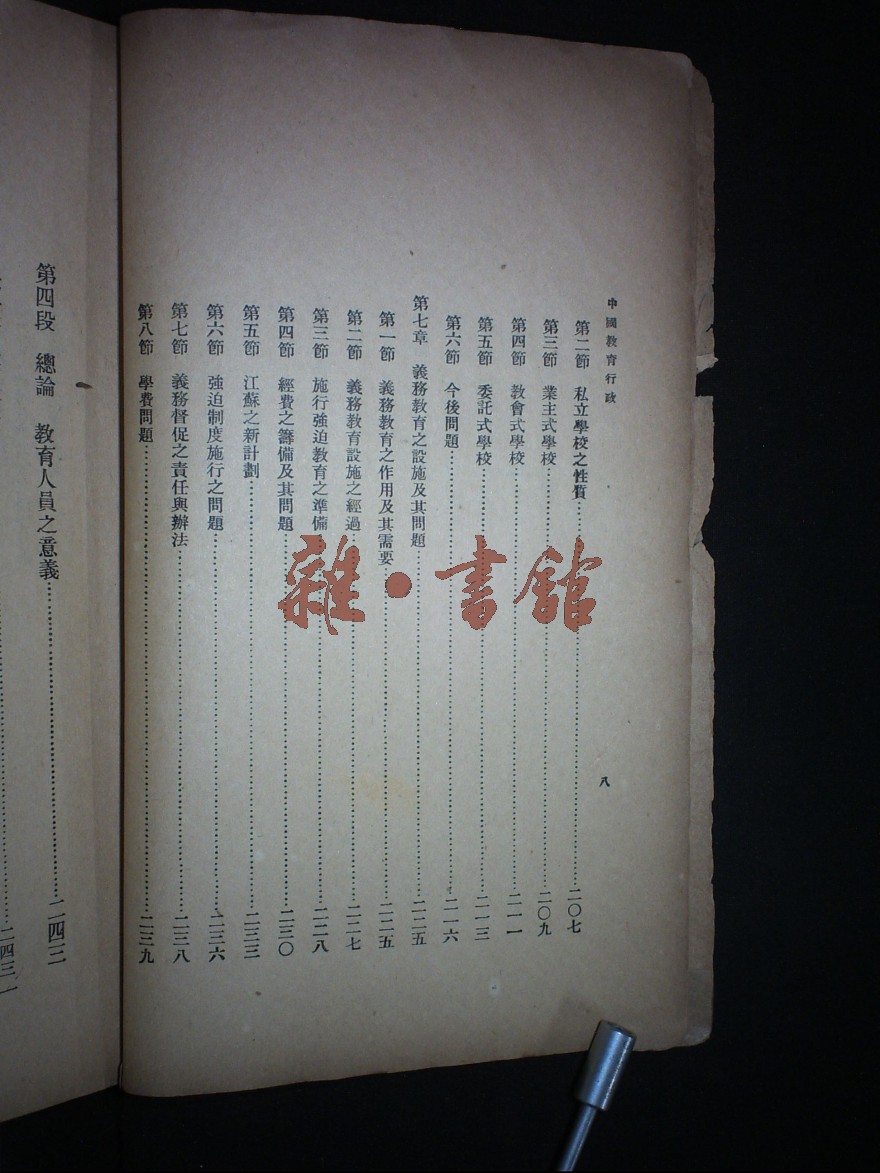 中國教育行政
八
第二節　私立學校之性質……二〇七
第三節　業主式學校……二〇九
第四節　教會式學校……二一一
第五節　委託式學校……二一三
第六節　今後問題……二一六
第七章　義務教育之設施及其問題……二二五
第一節　義務教育之作用及其需要……二二五
第二節　義務教育設施之經過……二二七
第三節　施行強迫教育之準備……二二八
第四節　經費之籌備及其問題……二三〇
第五節　江蘇之新計劃……二三三
第六節　強迫制度施行之問題……二三六
第七節　義務督促之責任與辦法……二三八
第八節　學費問題……二三九
第四段　總論　教育人員之意義……二四三
雜·書館